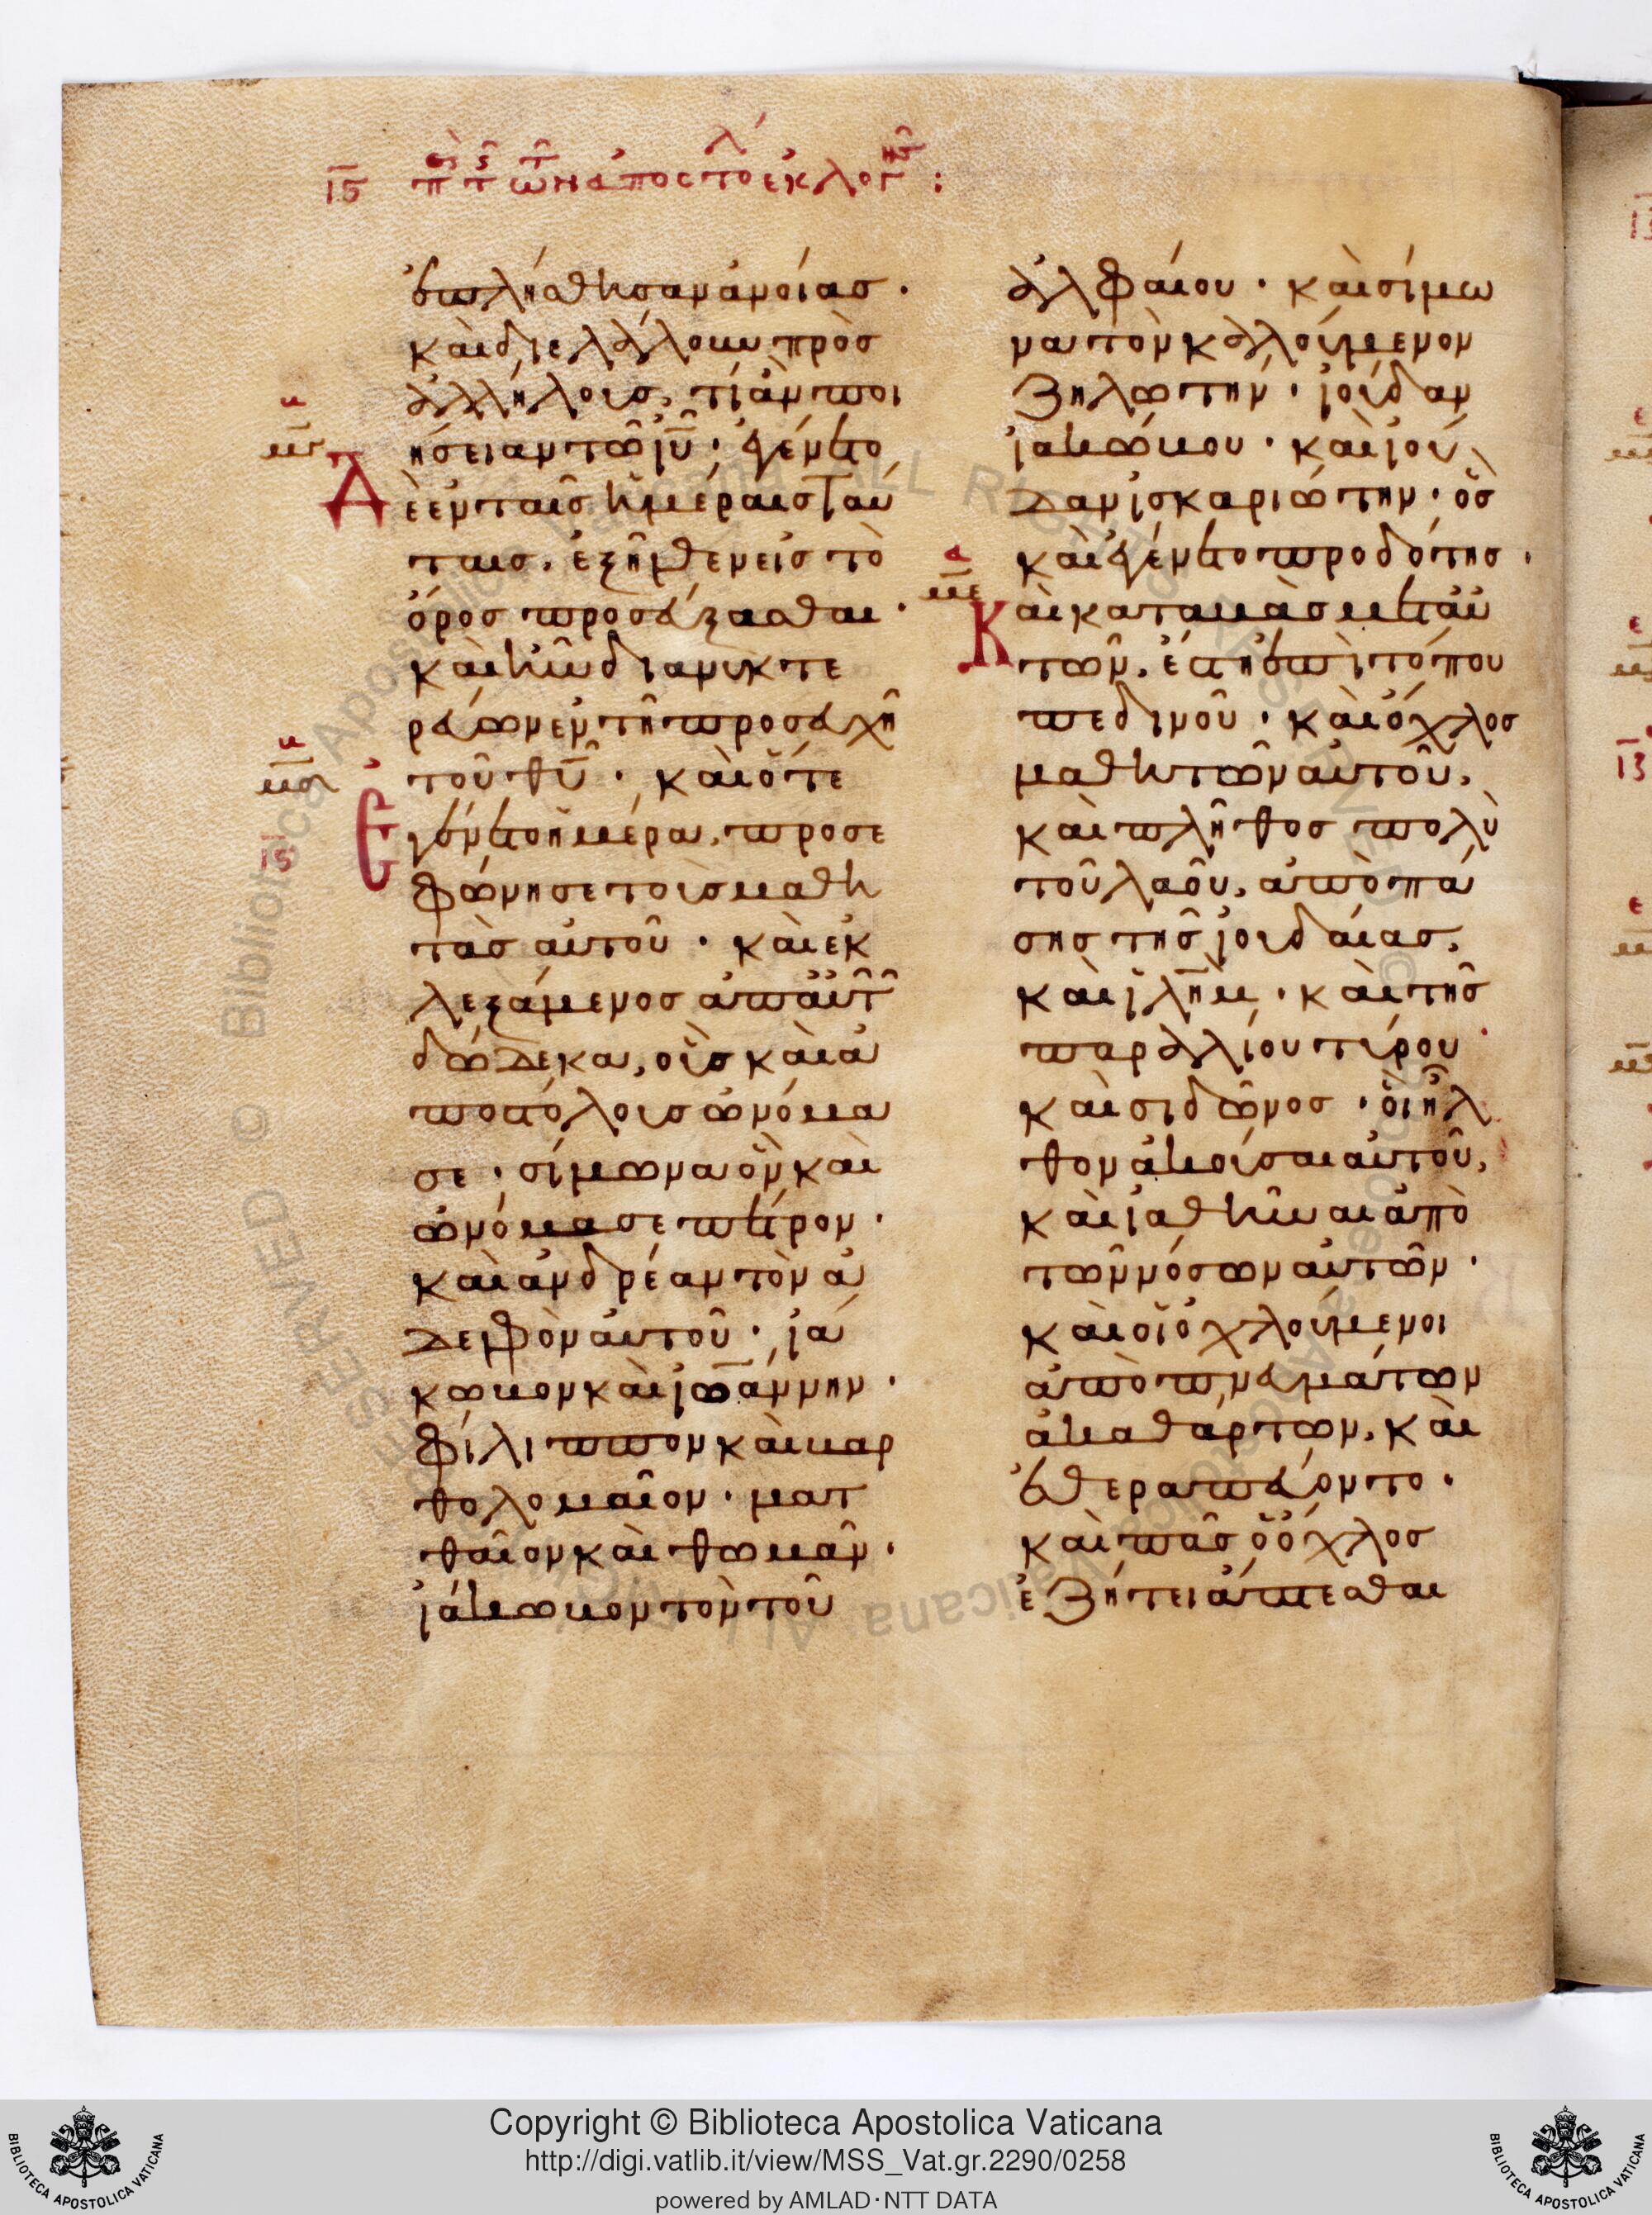 ις περι της των αποστολ εκλογης :
ἐπλήσθησαν ἀνοίας ·
καὶ διελάλουν πρὸς
ἀλλήλους, τί ἂν ποι
ήσειαν τῶ ἰῦ · ἐγένετο
Δ ὲ ἐν ταῖς ἡμέραις ταύ
ταις, ἐξῆλθεν εἰς τὸ
ὄρος προσεύξασθαι ·
καὶ ἦν διανυκτε
ρεύων ἐν τῆ προσευχῆ
τοῦ θῦ · καὶ ὅτε
Ἐ γένετο ἡμέρα, προσε
φώνησε τοὺς μαθη
τὰς αὐτοῦ · καὶ ἐκ
λεξάμενος ἀπ αὐτῶν
δώδεκα, οὓς καὶ ἀ
ποστόλους ὠνόμα
σε · σίμωνα ὃν καὶ
ὠνόμασε πέτρον ·
καὶ ἀνδρέαν τὸν ἀ
δελφὸν αὐτοῦ · ἰά
κωβον καὶ ἰωάννην ·
φίλιππον καὶ βαρ
θολομαῖον · ματ
θαῖον καὶ θωμᾶν ·
ἰάκωβον τὸν τοῦ
ἀλφαίου · καὶ σίμω
να τὸν καλούμενον
ζηλωτήν · ἰούδαν
ἰακώβου · καὶ ἰού
δαν ἰσκαριώτην · ὃς
καὶ ἐγένετο προδότης ·
Κ αὶ καταβὰς μετ αὐ
τῶν, ἔστη ἐπὶ τόπου
πεδινοῦ · καὶ ὄχλος
μαθητῶν αὐτοῦ,
καὶ πλῆθος πολὺ
τοῦ λαοῦ, ἀπὸ πά
σης τῆς ἰουδαίας,
καὶ ἰλῆμ · καὶ τῆς
παραλίου τύρου
καὶ σιδῶνος · οἳ ἦλ
θον ἀκοῦσαι αὐτοῦ,
καὶ ἰαθῆναι ἀπὸ
τῶν νόσων αὐτῶν ·
καὶ οἱ ὀχλούμενοι
ἀπὸ πνευμάτων
ἀκαθάρτων, καὶ
ἐθεραπεύοντο ·
καὶ πᾶς ὁ ὄχλος
ἐζήτει ἅπτεσθαι
Copyright © Biblioteca Apostolica Vaticana
http://digi.vatlib.it/view/MSS_Vat.gr.2290/0258
powered by AMLAD·NTT DATA
BIBLIOTECA APOSTOLICA VATICANA
BIBLIOTECA APOSTOLICA VATICANA